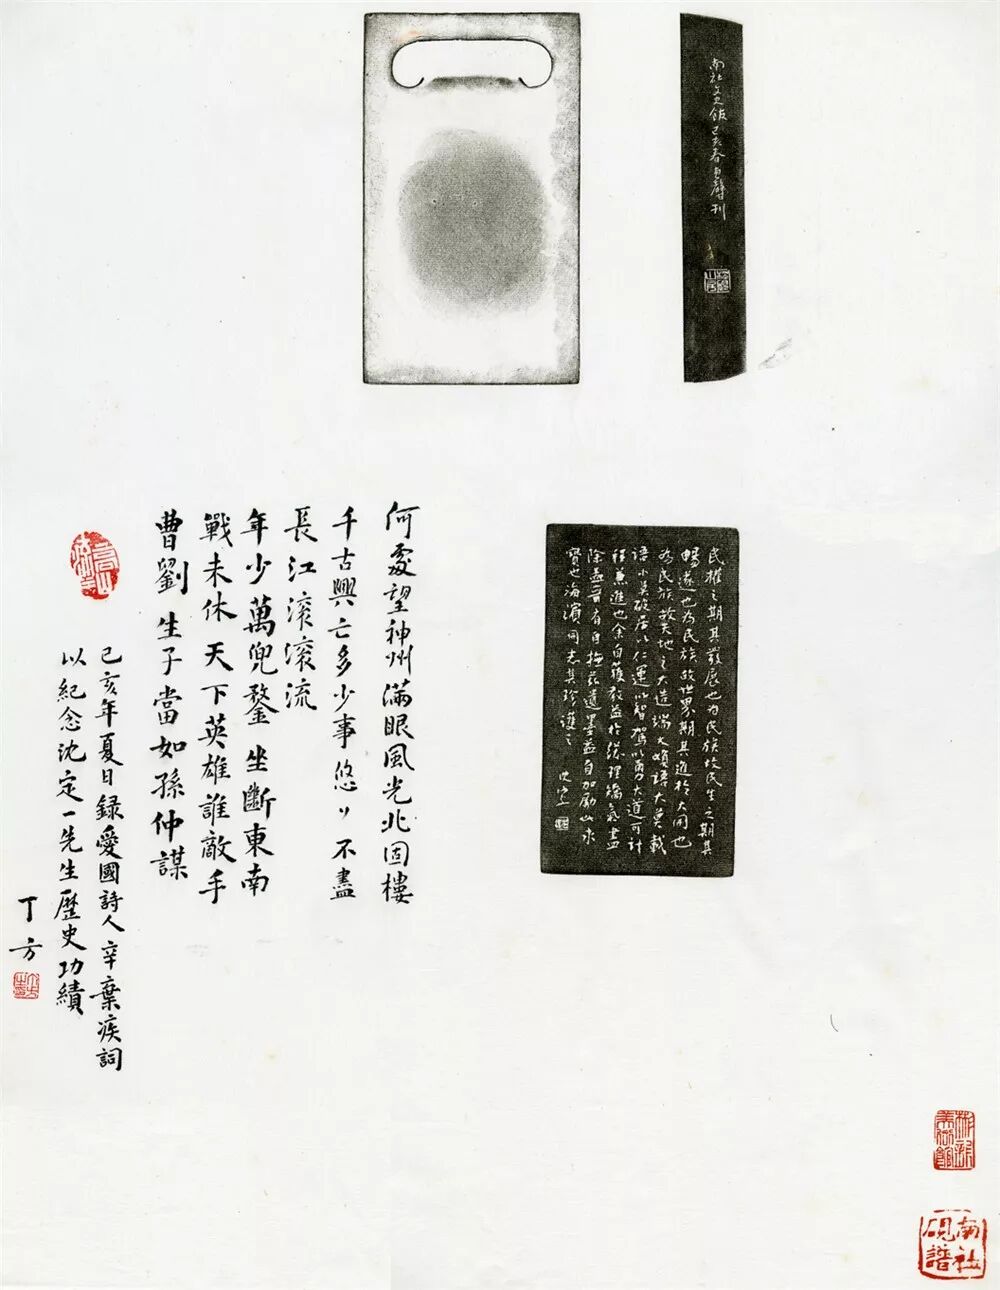 南社文史館己亥春
民權之期其發展也為民族故民生之期其
暢遂也為民族故世界期其進於大同也
為民族故天地之大造端大語大莫載
語小莫破居以仁運以智駕以勇大道可計
程進也余自獲教益於總理氣盡
除自撫茲遺墨益自加勵山水
賢也海濱同志其珍護之 定一
何處望神州滿眼風光北固樓
千古興亡多少事悠〃不盡
長江滾滾流
年少萬兜鍪坐斷東南
戰未休天下英雄誰敵手
曹劉生子當如孫仲謀
己亥年夏日錄愛國詩人辛棄疾詞
以紀念沈定一先生歷史功績
丁方
南社硯譜